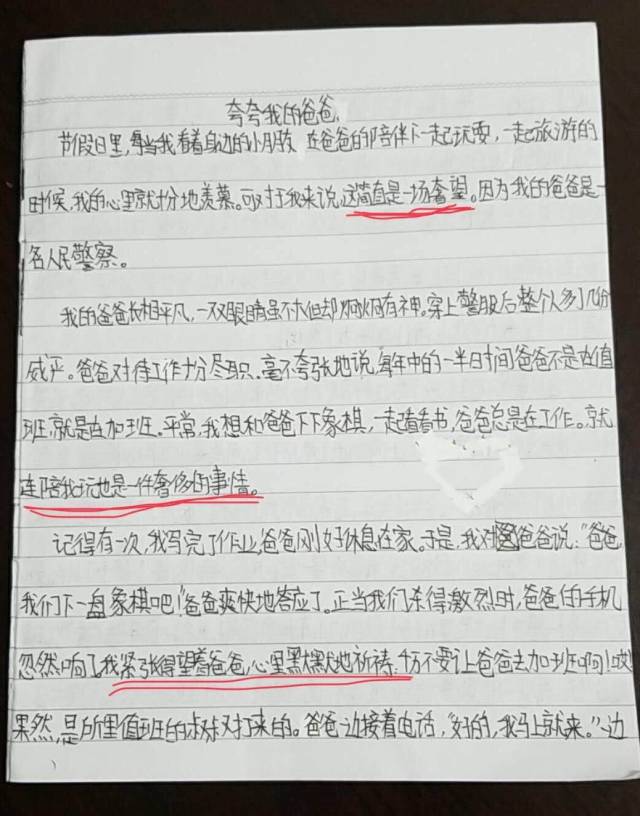 夸夸我的爸爸
节假日里,每当我看着身边的小朋友 在爸爸的陪伴下一起玩耍,一起旅游的
时候,我的心里就十分地羡慕。可对于我来说,这简直是一场奢望。因为我的爸爸是一
名人民警察。
我的爸爸长相平凡,一双眼睛虽不大但却炯炯有神。穿上警服后整个人多了几份
威严。爸爸对待工作十分尽职.毫不夸张地说,每年中的一半时间爸爸不是在值
班,就是在加班。平常,我想和爸爸下下象棋,一起看看书,爸爸总是在工作。就
连陪我玩也是一件奢侈的事情。
记得有一次,我写完了作业,爸爸刚好休息在家。于是,我对爸爸说:"爸爸,
我们下一盘象棋吧!"爸爸爽快地答应了。正当我们杀得激烈时,爸爸的手机
忽然响了,我紧张得望着爸爸,心里默默地祈祷.千万不要让爸爸去加班啊!哎!
果然,是所里值班的叔叔打来的。爸爸边接着电话,"好的,我马上就来。"边